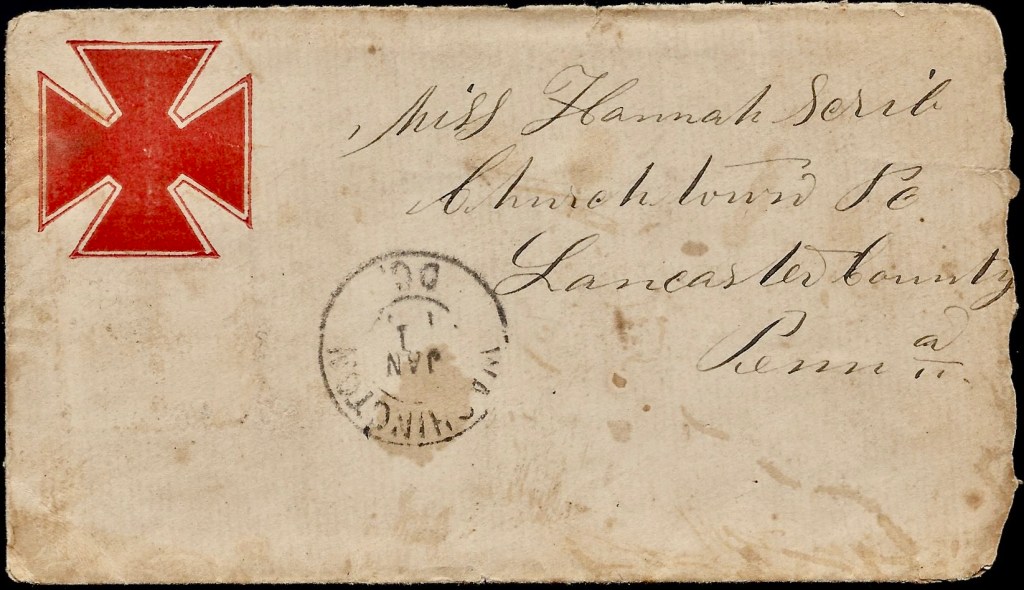 Miss Hannah Scrib
Churchtown Po
Lancaster County
Penn a
WASHINGTON
D.C.
JAN
1